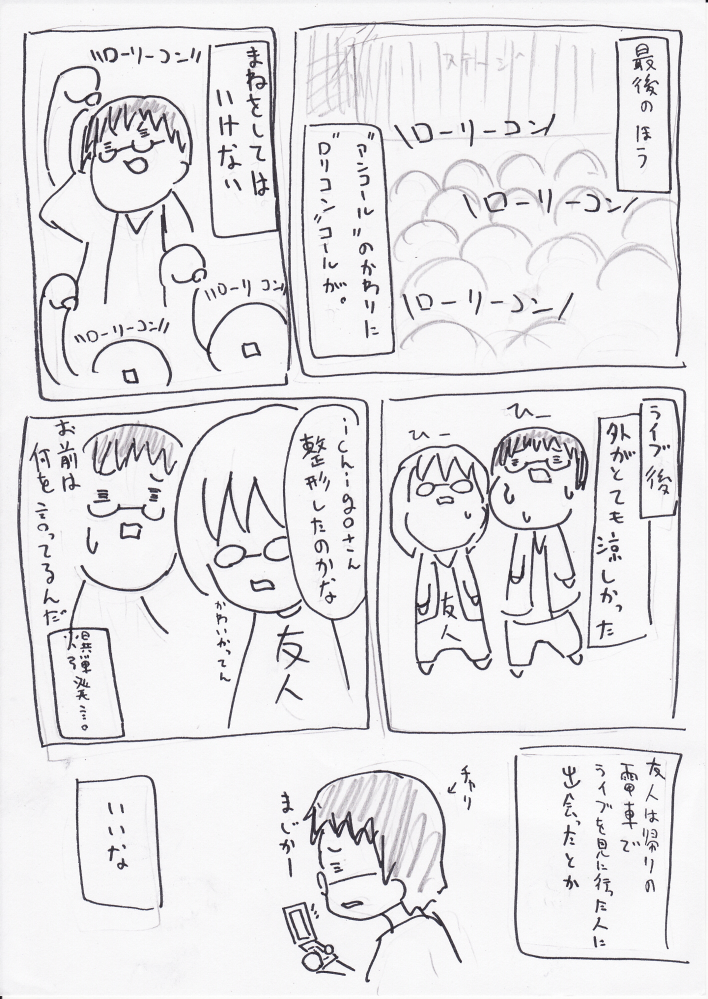 最後のほう
ステージ
\ローリーコン/
\ローリーコン/
\ローリーコン/
"アンコール"のかわりに
"ロリコン"コールが。
まねをしては
いけない
"ローリーコン"
"ローリーコン"
"ローリーコン"
ライブ後
外がとても涼しかった
ひー
ひー
友人
ichigoさん
整形したのかな
かわいかってん
友人
お前は
何を言ってるんだ
爆弾発言。
友人は帰りの
電車で
ライブを見に行った人に
出会ったとか
チャリ
まじかー
いいな